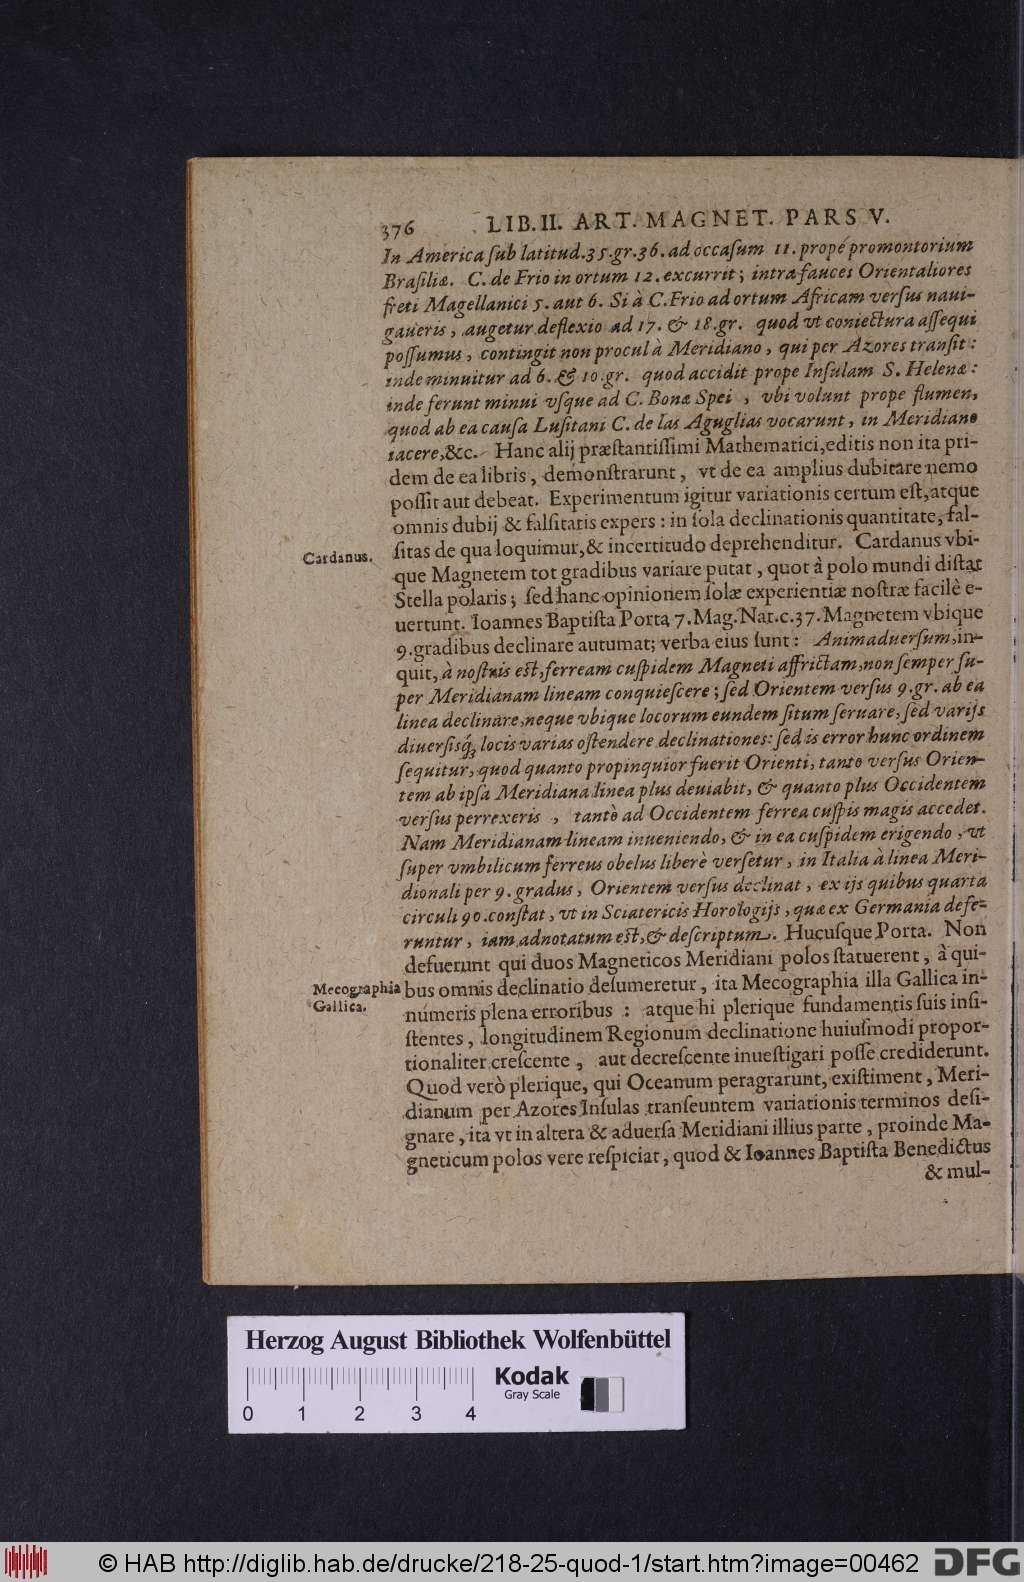 376 LIB. II. ART. MAGNET. PARS V.
In America ſub latitud. 35. gr. 36. ad occaſum 11. propè promontorium
Braſiliæ. C. de Frio in ortum 12. excurrit; intra fauces Orientaliores
freti Magellanici 5. aut 6. Si à C. Frio ad ortum Africam verſus naui-
gaueris, augetur deflexio ad 17. & 18. gr. quod vt coniectura aſſequi
poſſumus, contingit non procul à Meridiano, qui per Azores tranſit:
inde minuitur ad 6. & 10. gr. quod accidit prope Inſulam S. Helenæ:
inde ferunt minui vſque ad C. Bonæ Spei, vbi volunt prope flumen,
quod ab ea cauſa Luſitani C. de las Aguglias vocarunt, in Meridiano
iacere, &c. Hanc alij præſtantiſſimi Mathematici, editis non ita pri-
dem de ea libris, demonſtrarunt, vt de ea amplius dubitare nemo
poſſit aut debeat. Experimentum igitur variationis certum eſt, atque
omnis dubij & falſitatis expers: in ſola declinationis quantitate, fal-
ſitas de qua loquimur, & incertitudo deprehenditur. Cardanus vbi-
Cardanus.
que Magnetem tot gradibus variare putat, quot à polo mundi diſtat
Stella polaris; ſed hanc opinionem ſolæ experientiæ noſtræ facilè e-
uertunt. Ioannes Baptiſta Porta 7. Mag. Nat. c. 37. Magnetem vbique
9. gradibus declinare autumat; verba eius ſunt: Animaduerſum, in-
quit, à noſtris eſt, ferream cuſpidem Magneti affrictam, non ſemper ſu-
per Meridianam lineam conquieſcere; ſed Orientem verſus 9. gr. ab ea
linea declinare, neque vbique locorum eundem ſitum ſeruare, ſed varijs
diuerſisq́; locis varias oſtendere declinationes: ſed is error hunc ordinem
ſequitur, quod quanto propinquior fuerit Orienti, tanto verſus Orien-
tem ab ipſa Meridiana linea plus deuiabit, & quanto plus Occidentem
verſus perrexeris, tantò ad Occidentem ferrea cuſpis magis accedet.
Nam Meridianam lineam inueniendo, & in ea cuſpidem erigendo, vt
ſuper vmbilicum ferreus obelus liberè verſetur, in Italia à linea Meri-
dionali per 9. gradus, Orientem verſus declinat, ex ijs quibus quarta
circuli 90. conſtat, vt in Sciatericis Horologijs, quæ ex Germania defe-
runtur, iam adnotatum eſt, & deſcriptum. Hucuſque Porta. Non
defuerunt qui duos Magneticos Meridiani polos ſtatuerent, à qui-
Mecographia
Gallica.
bus omnis declinatio deſumeretur, ita Mecographia illa Gallica in-
númeris plena erroribus: atque hi plerique fundamentis ſuis inſi-
ſtentes, longitudinem Regionum declinatione huiuſmodi propor-
tionaliter creſcente, aut decreſcente inueſtigari poſſe crediderunt.
Quod verò plerique, qui Oceanum peragrarunt, exiſtiment, Meri-
dianum per Azores Inſulas tranſeuntem variationis terminos deſi-
gnare, ita vt in altera & aduerſa Meridiani illius parte, proinde Ma-
gneticum polos vere reſpiciat, quod & Ioannes Baptiſta Benedictus
& mul-
Herzog August Bibliothek Wolfenbüttel
Kodak
Gray Scale
0 1 2 3 4
© HAB http://diglib.hab.de/drucke/218-25-quod-1/start.htm?image=00462
DFG